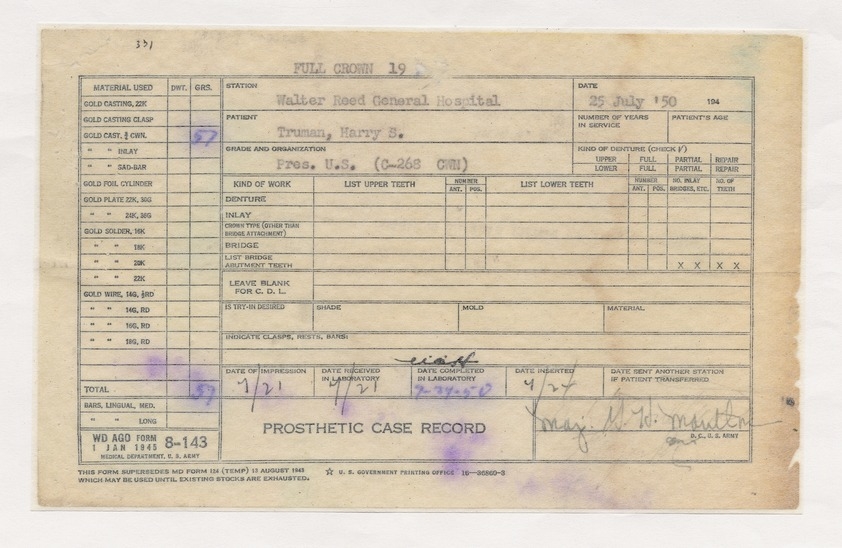 331
FULL CROWN 19
MATERIAL USED DWT. GRS.
STATION
Walter Reed General Hospital
DATE
25 July '50 194
GOLD CASTING, 22K
GOLD CASTING CLASP
PATIENT
Truman, Harry S.
NUMBER OF YEARS IN SERVICE
PATIENT'S AGE
GOLD CAST, ¾ CWN. 57
" " INLAY
" " SAD-BAR
GRADE AND ORGANIZATION
Pres. U.S. (C-268 CWH)
KIND OF DENTURE (CHECK √)
UPPER FULL PARTIAL REPAIR
LOWER FULL PARTIAL REPAIR
GOLD FOIL CYLINDER
GOLD PLATE 22K, 30G
" " 24K, 36G
GOLD SOLDER, 16K
" " 18K
" " 20K
" " 22K
GOLD WIRE, 14G, ½RD
" " 14G, RD
" " 16G, RD
" " 18G, RD
TOTAL 57
BARS, LINGUAL, MED.
" " LONG
KIND OF WORK LIST UPPER TEETH NUMBER ANT. POS. LIST LOWER TEETH NUMBER ANT. POS. NO. INLAY BRIDGES, ETC. NO. OF TEETH
DENTURE
INLAY
CROWN TYPE (OTHER THAN BRIDGE ATTACHMENT)
BRIDGE
LIST BRIDGE ABUTMENT TEETH X X X X
LEAVE BLANK FOR C. D. L.
IS TRY-IN DESIRED SHADE MOLD MATERIAL
INDICATE CLASPS, RESTS, BARS:
DATE OF IMPRESSION
7/21
DATE RECEIVED IN LABORATORY
7/21
DATE COMPLETED IN LABORATORY
7-24-50
DATE INSERTED
7/24
DATE SENT ANOTHER STATION IF PATIENT TRANSFERRED
WD AGO FORM 8-143
1 JAN 1945
MEDICAL DEPARTMENT, U. S. ARMY
PROSTHETIC CASE RECORD
Maj.
D. C., U. S. ARMY
THIS FORM SUPERSEDES MD FORM 124 (TEMP) 13 AUGUST 1943
WHICH MAY BE USED UNTIL EXISTING STOCKS ARE EXHAUSTED.
☆ U. S. GOVERNMENT PRINTING OFFICE 16—36860-3